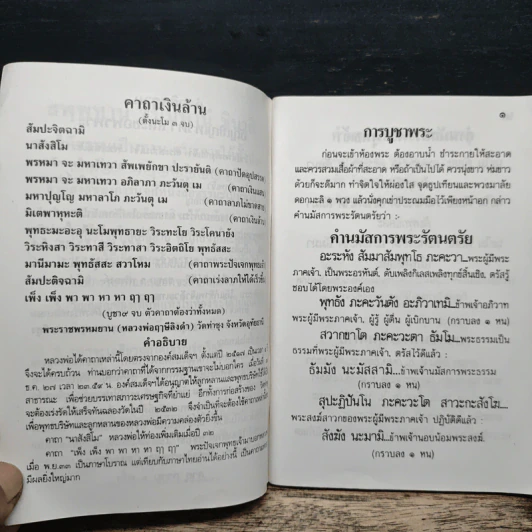 คาถาเงินล้าน
(ตั้งนะโม ๓ จบ)
สัมปะจิตฉามิ
นาสังสิโม
พรหมา จะ มหาเทวา สัพเพยักขา ปะรายันติ (คาถาปัดอุปสรรค
พรหมา จะ มหาเทวา อภิลาภา ภะวันตุ เม (คาถาเงินแสน
มหาปุญโญ มหาลาโภ ภะวันตุ เม (คาถาลาภไม่ขาดสาย
มิเตพาหุหะติ (คาถาเงินล้าน
พุทธะมะอะอุ นะโมพุทธายะ วิระทะโย วิระโคนายัง
วิระหิงสา วิระทาสี วิระทาสา วิระอิตถิโย พุทธัสสะ
มานีมามะ พุทธัสสะ สวาโหม (คาถาพระปัจเจกพุทธเจ้า
สัมปะติจฉามิ (คาถาเร่งลาภให้ได้เร็วขึ้น
เพ็ง เพ็ง พา พา หา หา ฤา ฤา
(บูชา๙ จบ ตัวคาถาต้องว่าทั้งหมด)
พระราชพรหมยาน (หลวงพ่อฤาษีลิงดำ) วัดท่าซุง จังหวัดอุทัยธานี
คำอธิบาย
หลวงพ่อได้คาถาเหล่านี้โดยตรงจากองค์สมเด็จฯ ตั้งแต่ปี
จึงจะได้ครบถ้วน ท่านบอกว่าคาถาที่ได้จากกรรมฐานเขาจะไม่บอกใคร
ธ.ค. องค์สมเด็จฯได้อนุญาตให้ลูกหลานและพุทธบริษัท
สาธารณะ เพื่อช่วยบรรเทาสภาวะเศรษฐกิจที่ย่ำแย่ อีกทั้งการก่อสร้างของ
จะต้องเร่งรัดให้เสร็จทันฉลองวัดในปี ๒๕๓๒ จึงจำเป็นที่จะต้องใช้คาถา
เพื่อพุทธบริษัทและลูกหลานของหลวงพ่อมีความคล่องตัวยิ่งขึ้น
คาถา "นาสังสิโม" หลวงพ่อให้ท่องเพิ่มเติมเมื่อปี ๓๒
คาถา "เพ็ง เพ็ง พา พา หา หา ฤา ฤา" พระปัจเจกพุทธเจ้ามาบอก
เมื่อ พ.ย.๓๓ เป็นภาษาโบราณ แต่เทียบกับภาษาไทยอ่านได้อย่างนี้ เป็นคาถา
มีผลยิ่งใหญ่มาก
๑
การบูชาพระ
ก่อนจะเข้าห้องพระ ต้องอาบน้ำ ชำระกายให้สะอาด
และควรสวมเสื้อผ้าที่สะอาด หรือถ้าเป็นไปได้ ควรนุ่งขาว ห่มขาว
ด้วยก็จะดีมาก ทำจิตใจให้ผ่องใส จุดธูปเทียนและพวงมาลัย
ดอกมะลิ ๑ พวง แล้วนั่งคุกเข่าประณมมือไว้เพียงหน้าอก กล่าว
คำนมัสการพระรัตนตรัยว่า :-
คำนมัสการพระรัตนตรัย
อะระหัง สัมมาสัมพุทโธ ภะคะวา...พระผู้มีพระ
ภาคเจ้า, เป็นพระอรหันต์, ดับเพลิงกิเลสเพลิงทุกข์สิ้นเชิง, ตรัสรู้
ชอบได้โดยพระองค์เอง
พุทธัง ภะคะวันตัง อะภิวาเทมิ...ข้าพเจ้าอภิวาท
พระผู้มีพระภาคเจ้า, ผู้รู้ ผู้ตื่น ผู้เบิกบาน (กราบลง ๑ หน)
สวากขาโต ภะคะวะตา ธัมโม...พระธรรมเป็น
ธรรมที่พระผู้มีพระภาคเจ้า, ตรัสไว้ดีแล้ว :
ธัมมัง นะมัสสามิ...ข้าพเจ้านมัสการพระธรรม
(กราบลง ๑ หน)
สุปะฏิปันโน ภะคะวะโต สาวะกะสังโฆ...
พระสงฆ์สาวกของพระผู้มีพระภาคเจ้า ปฏิบัติดีแล้ว
สังฆัง นะมามิ...ข้าพเจ้านอบน้อมพระสงฆ์.
(กราบลง ๑ หน)